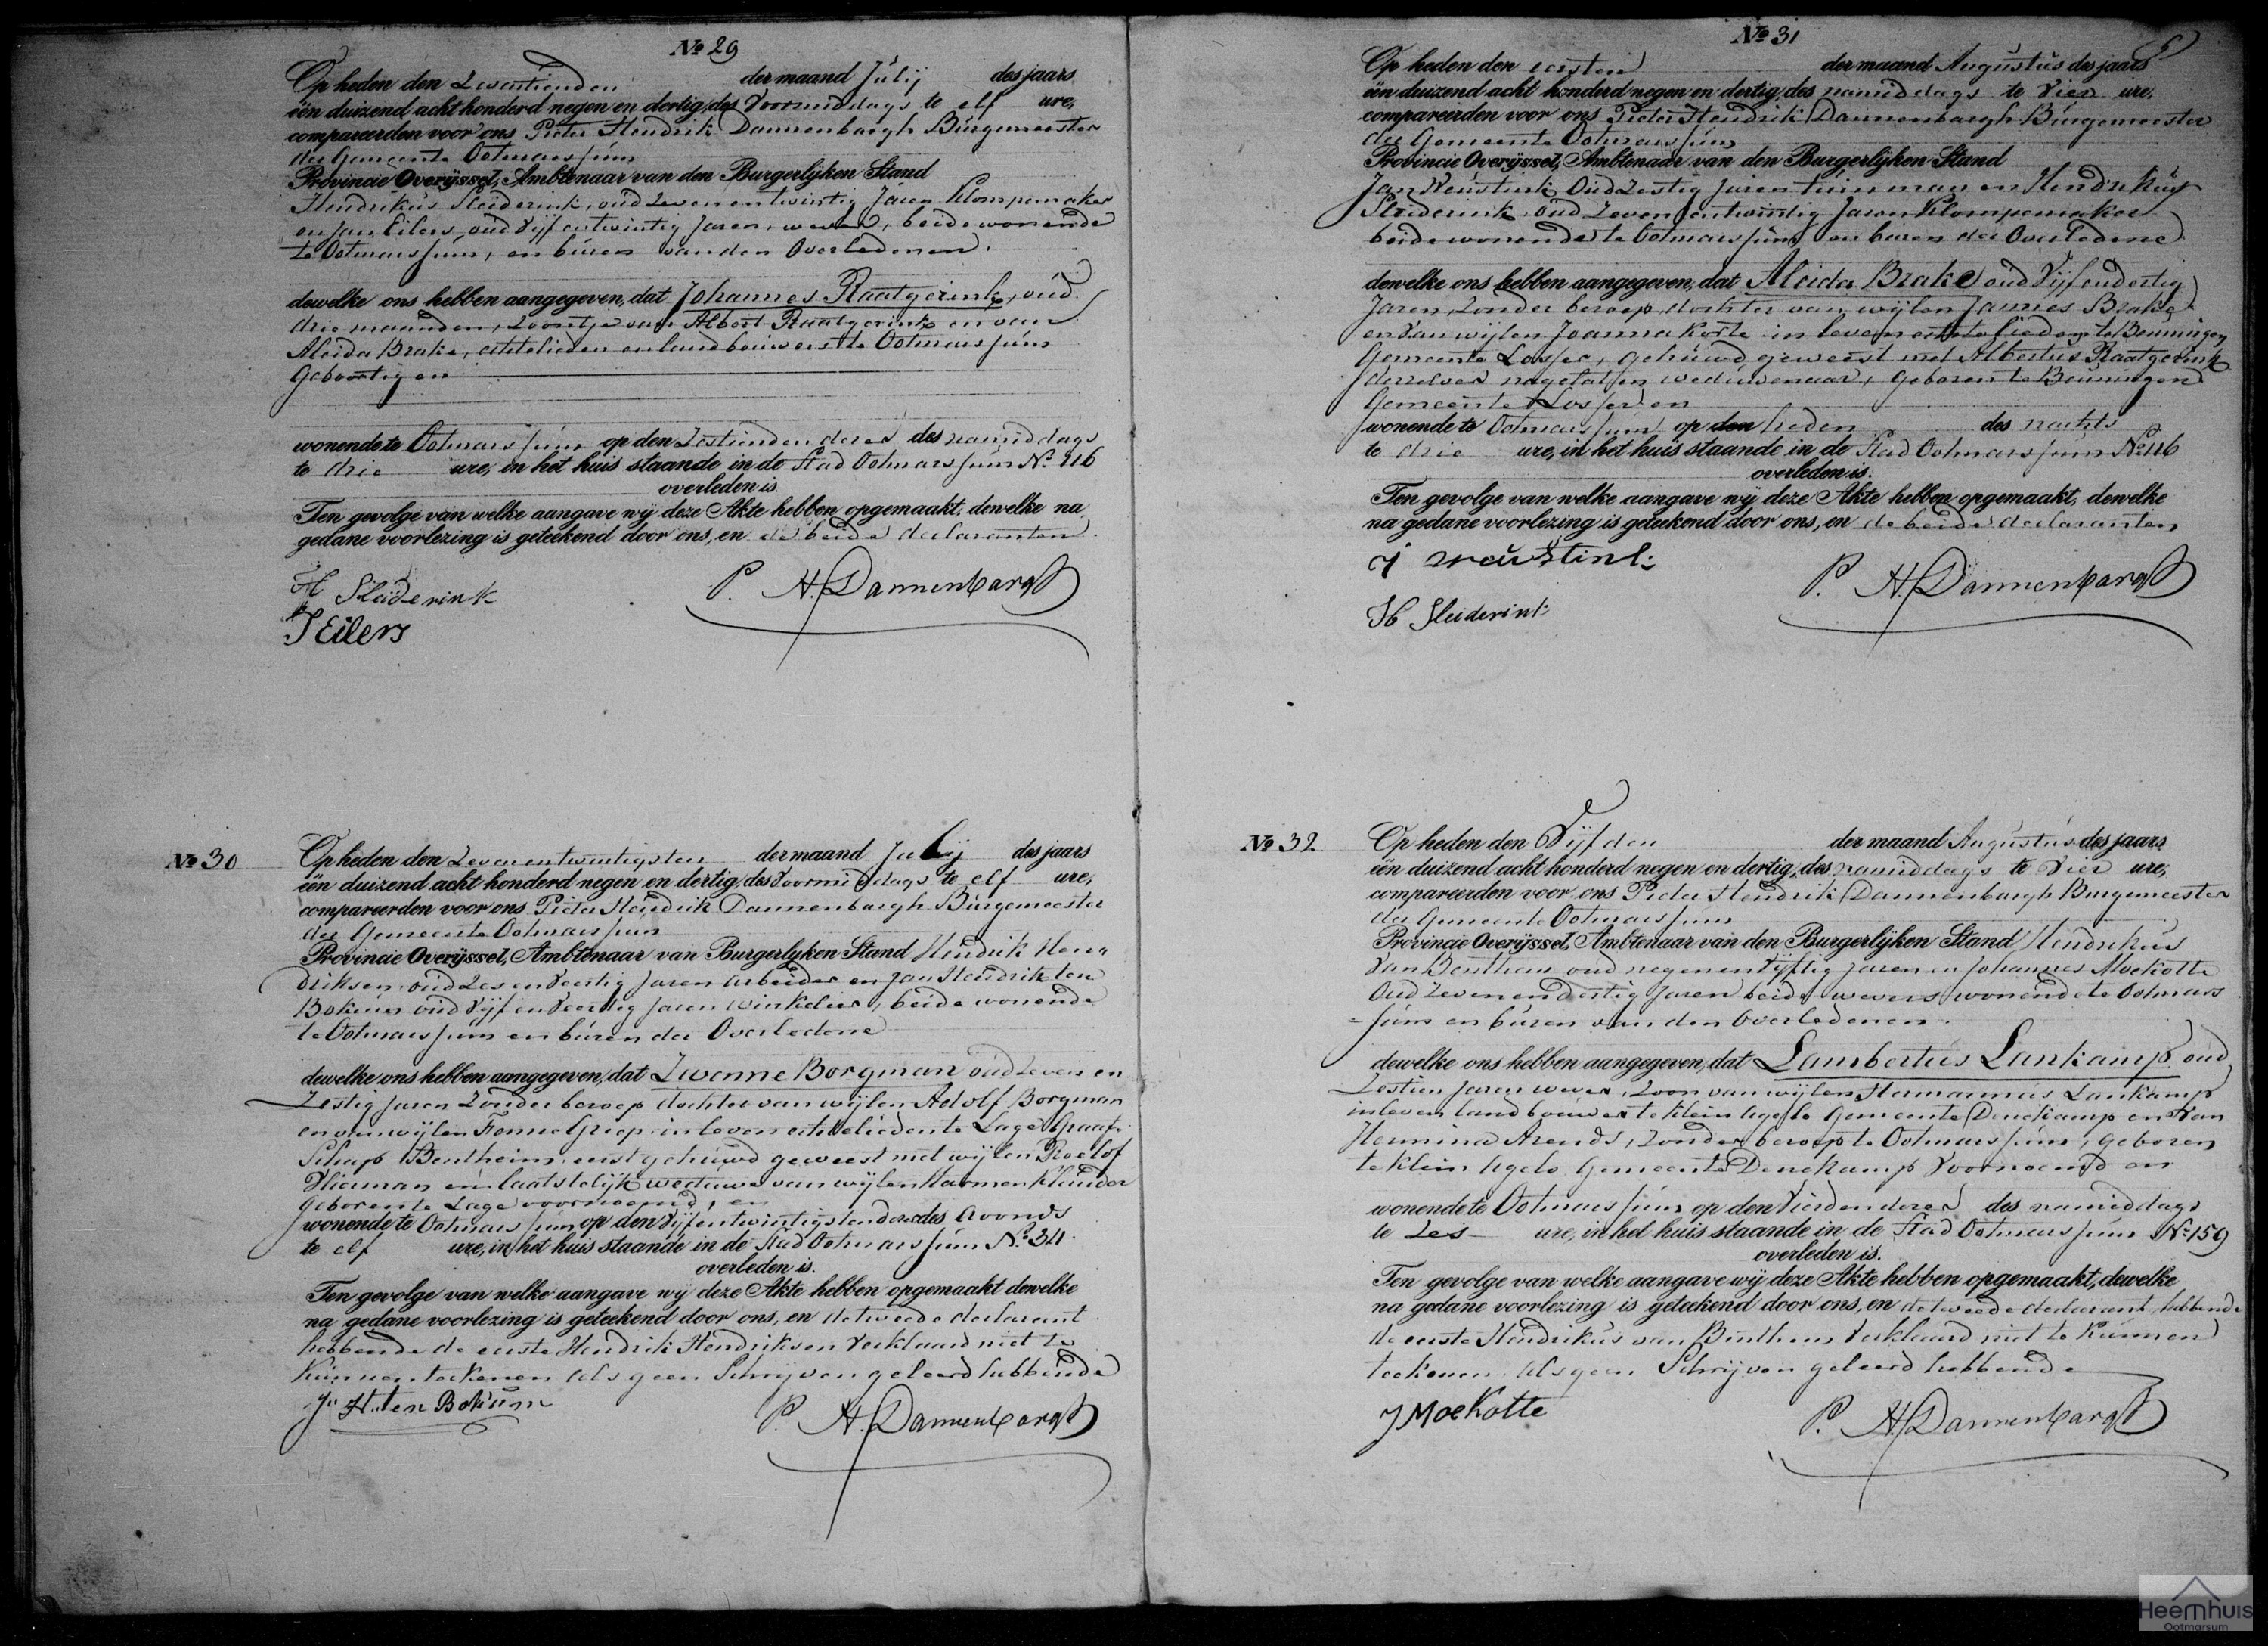 № 29
Op heden den Zeventienden der maand Julij des jaars
één duizend acht honderd negen en dertig, des Voormiddags te elf ure,
compareerden voor ons Pieter Hendrik Dannenbargh Burgemeester
der Gemeente Ootmarssum
Provincie Overijssel, Ambtenaar van den Burgerlijken Stand
Hendrikus Sleiderink, oud Zeven en twintig Jaren Klompemaker
en Jan Eilers oud Vijf entwintig Jaren, wever, beide wonende
te Ootmarssum, en buren van den Overledenen.
dewelke ons hebben aangegeven, dat Johannes Raatgerink, oud
drie maanden, Zoontje van Albert Raatgerink en van
Aleida Brake, echtelieden en landbouwers te Ootmarssum
Geboortig en
wonende te Ootmarssum op den Zestienden dezer des namiddags
te drie ure, in het huis staande in de Stad Ootmarssum No 116
overleden is.
Ten gevolge van welke aangave wij deze Akte hebben opgemaakt, dewelke na
gedane voorlezing is geteekend door ons, en de beide declaranten.
H Sleiderink
J Eilers
P. H. Dannenbargh
№ 30
Op heden den Zevenentwintigsten der maand Julij des jaars
één duizend acht honderd negen en dertig, des Voormiddags te elf ure,
compareerden voor ons Pieter Hendrik Dannenbargh Burgemeester
der Gemeente Ootmarssum
Provincie Overijssel, Ambtenaar van Burgerlyken Stand Hendrik Hen
driksen oud Zes en Veertig Jaren Arbeider en Jan Hendrik ten
Bokum oud Vijf en Veertig Jaren Winkelier, beide wonende
te Ootmarssum en buren der Overledene
dewelke ons hebben aangegeven, dat Zwenne Borgman oud Zeven en
Zestig Jaren Zonder beroep dochter van wijlen Adolf Borgman
en van wijlen Fenne Griep in leven echtelieden te Lage Graaf-
Schap Bentheim, eerst gehuwd geweest met wijlen Roelof
Vlierman en laatstelijk weduwe van wijlen Harmen Klunder
geboren te Lage voornoemd, en
wonende te Ootmarssum op den Vijfentwintigsten dezer des Avonds
te elf ure, in het huis staande in de Stad Ootmarssum No 34.
overleden is.
Ten gevolge van welke aangave wij deze Akte hebben opgemaakt dewelke
na gedane voorlezing is geteekend door ons, en de tweede declarant
hebbende de eerste Hendrik Hendriksen Verklaard niet te
Kunnen teekenen als geen Schryven geleerd hebbende
J. H. ten Bokum
P. H. Dannenbargh
№ 31
Op heden den eersten der maand Augustus des jaars
één duizend acht honderd negen en dertig, des namiddags te Vier ure,
compareerden voor ons Pieter Hendrik Dannenbargh Burgemeester
der Gemeente Ootmarssum
Provincie Overijssel, Ambtenaar van den Burgerlijken Stand
Jan Weustink Oud Zestig Jaren tuinman en Hendrikus
Sleiderink oud Zeven entwintig Jaren Klompemaker
beide wonende te Ootmarssum en buren der Overledene
dewelke ons hebben aangegeven, dat Aleida Brake oud Vijfendertig
Jaren, Zonder beroep, dochter van wijlen Jannes Brake
en Van wijlen Joanna Korte in leven echtelieden te Beuningen
Gemeente Losser, gehuwd geweest met Albertus Raatgerink
derzelver nagelaten weduwenaar, geboren te Beuningen
Gemeente Losser en
wonende te Ootmarssum op den heden des nachts
te drie ure, in het huis staande in de Stad Ootmarssum No 116
overleden is.
Ten gevolge van welke aangave wij deze Akte hebben opgemaakt, dewelke
na gedane voorlezing is geteekend door ons, en de beide declaranten
J Weustink
H Sleiderink
P. H. Dannenbargh
№ 32
Op heden den Vijfden der maand Augustus des jaars
één duizend acht honderd negen en dertig, des namiddags te Vier ure,
compareerden voor ons Pieter Hendrik Dannenbargh Burgemeester
der Gemeente Ootmarssum
Provincie Overijssel, Ambtenaar van den Burgerlijken Stand Hendrikus
Van Benthem oud negenenvijftig Jaren en Johannes Moekotte
Oud Zevenendertig Jaren beide wevers wonende te Ootmars
=sum en buren van den Overledenen.
dewelke ons hebben aangegeven, dat Lambertus Lankamp oud
Zestien Jaren wever, Zoon van wijlen Hermannus Lankamp
in leven landbouwer te klein Agelo Gemeente Denekamp en Van
Hermina Arends, Zonder beroep te Ootmarssum, geboren
te klein Agelo Gemeente Denekamp Voornoemd en
wonende te Ootmarssum op den Vierden dezer des namiddags
te Zes ure, in het huis staande in de Stad Ootmarssum No 159
overleden is.
Ten gevolge van welke aangave wij deze Akte hebben opgemaakt, dewelke
na gedane voorlezing is geteekend door ons, en de tweede declarant, hebbende
de eerste Hendrikus van Benthem Verklaard niet te Kunnen
teekenen als geen Schrijven geleerd hebbende
J Moekotte
P. H. Dannenbargh
Heemhuis
Ootmarsum